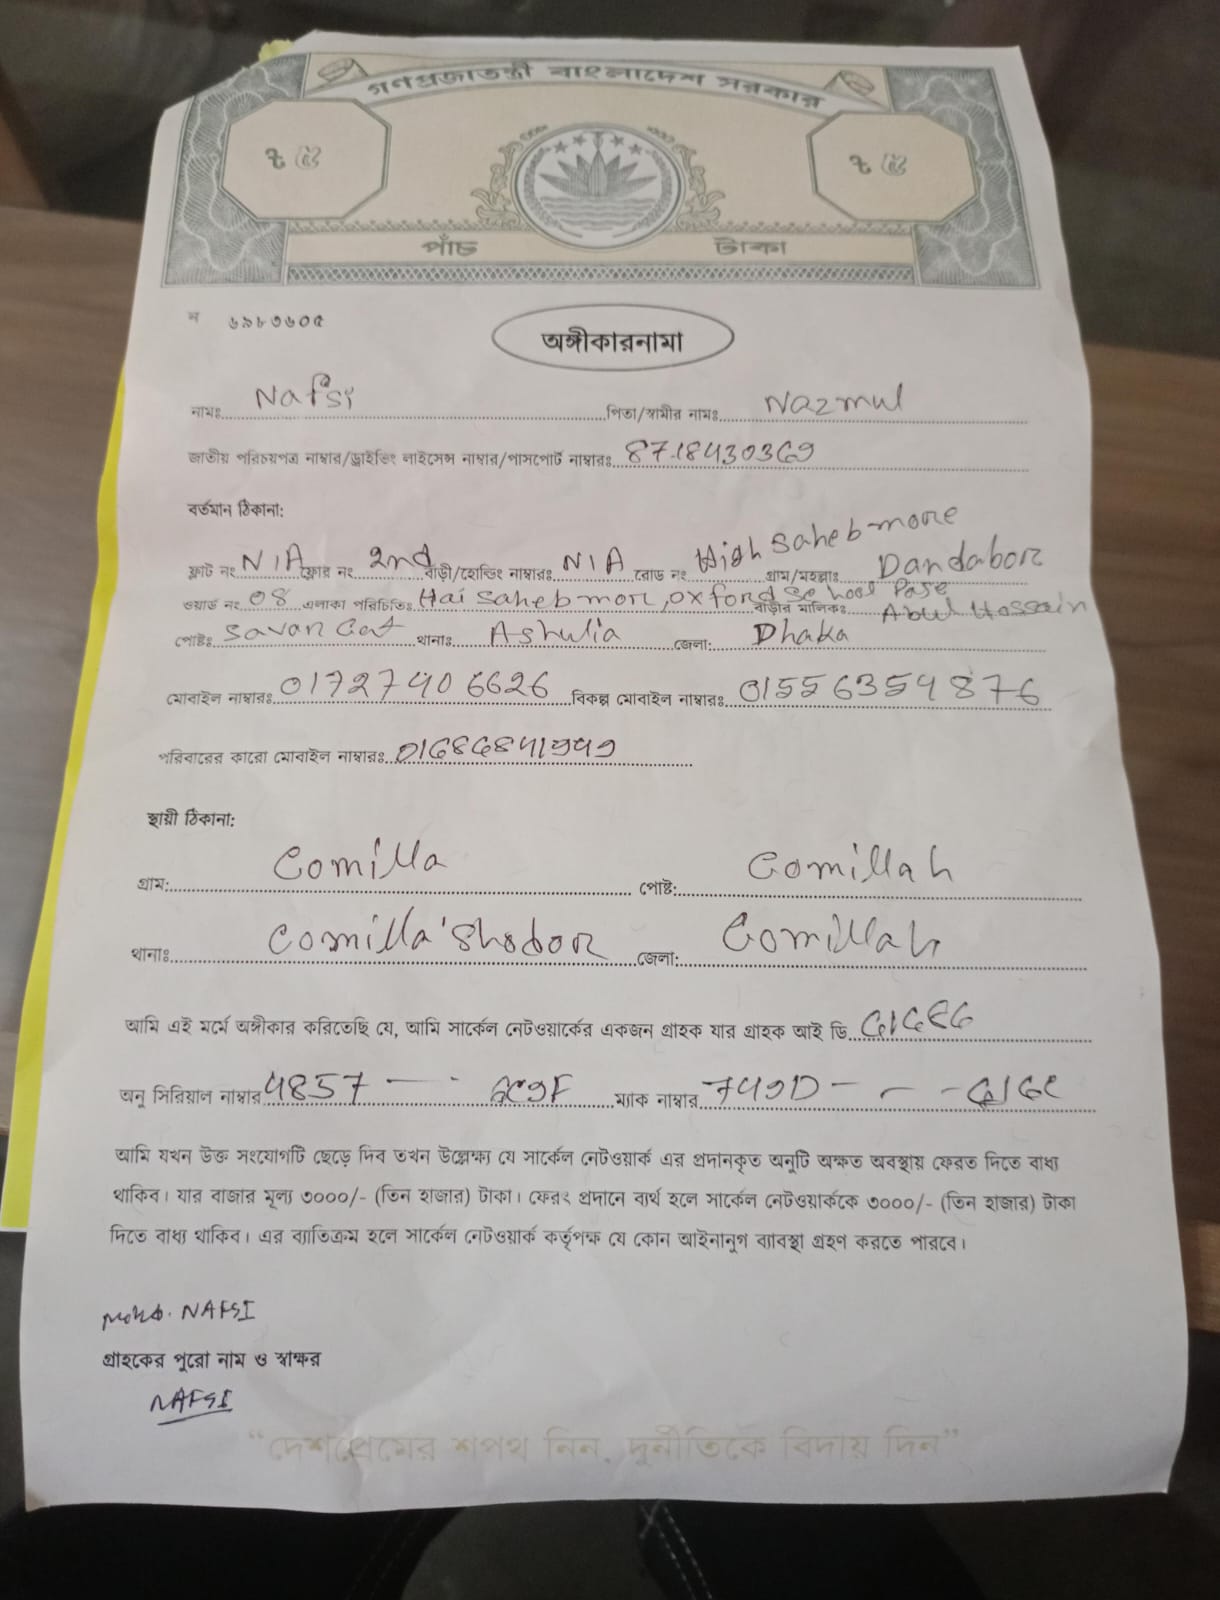 গণপ্রজাতন্ত্রী বাংলাদেশ সরকার
৳ ৫ ৳ ৫
পাঁচ টাকা
ন ৬৯৮৩৬০৫
অঙ্গীকারনামা
নামঃ Nafsi পিতা/স্বামীর নামঃ Nazmul
জাতীয় পরিচয়পত্র নাম্বার/ড্রাইভিং লাইসেন্স নাম্বার/পাসপোর্ট নাম্বারঃ 8718430369
বর্তমান ঠিকানা:
ফ্লাট নং N/A ফ্লোর নং 2nd বাড়ী/হোল্ডিং নাম্বারঃ N/A রোড নং High saheb more গ্রাম/মহল্লাঃ Dandabor
ওয়ার্ড নং 08 এলাকা পরিচিতিঃ Hai saheb more, oxford school Pase বাড়ীর মালিকঃ Abul Hossain
পোষ্টঃ Savar Cat থানাঃ Ashulia জেলা: Dhaka
মোবাইল নাম্বারঃ 01727406626 বিকল্প মোবাইল নাম্বারঃ 01556354876
পরিবারের কারো মোবাইল নাম্বারঃ
স্থায়ী ঠিকানা:
গ্রাম: Comilla পোষ্ট: Comillah
থানাঃ Comilla Shodor জেলা: Comillah
আমি এই মর্মে অঙ্গীকার করিতেছি যে, আমি সার্কেল নেটওয়ার্কের একজন গ্রাহক যার গ্রাহক আই ডি
অনু সিরিয়াল নাম্বার 4857 ম্যাক নাম্বার 749D
আমি যখন উক্ত সংযোগটি ছেড়ে দিব তখন উল্লেক্ষ্য যে সার্কেল নেটওয়ার্ক এর প্রদানকৃত অনুটি অক্ষত অবস্থায় ফেরত দিতে বাধ্য
থাকিব। যার বাজার মূল্য ৩০০০/- (তিন হাজার) টাকা। ফেরৎ প্রদানে ব্যর্থ হলে সার্কেল নেটওয়ার্ককে ৩০০০/- (তিন হাজার) টাকা
দিতে বাধ্য থাকিব। এর ব্যাতিক্রম হলে সার্কেল নেটওয়ার্ক কর্তৃপক্ষ যে কোন আইনানুগ ব্যাবস্থা গ্রহণ করতে পারবে।
Mohd. NAFSI
গ্রাহকের পুরো নাম ও স্বাক্ষর
NAFSI
“দেশপ্রেমের শপথ নিন, দুর্নীতিকে বিদায় দিন”